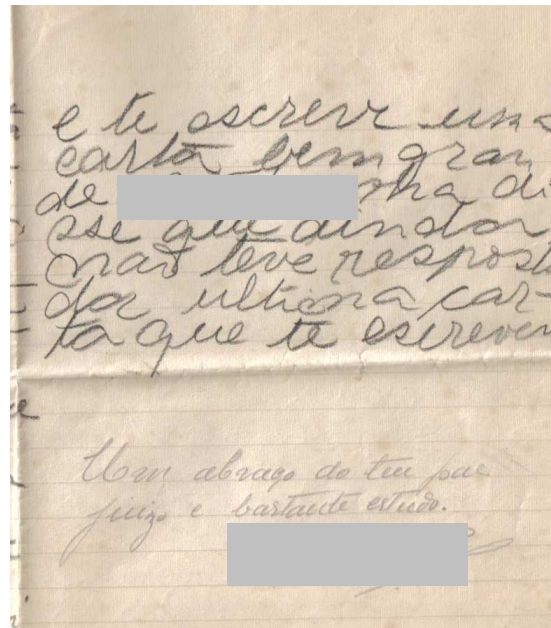 e te escreve uma
carta bem gran
de
sse que ainda
nao teve resposta
da ultima car-
ta que te escreveu
Um abraço do teu pae
juizo e bastante estudo.